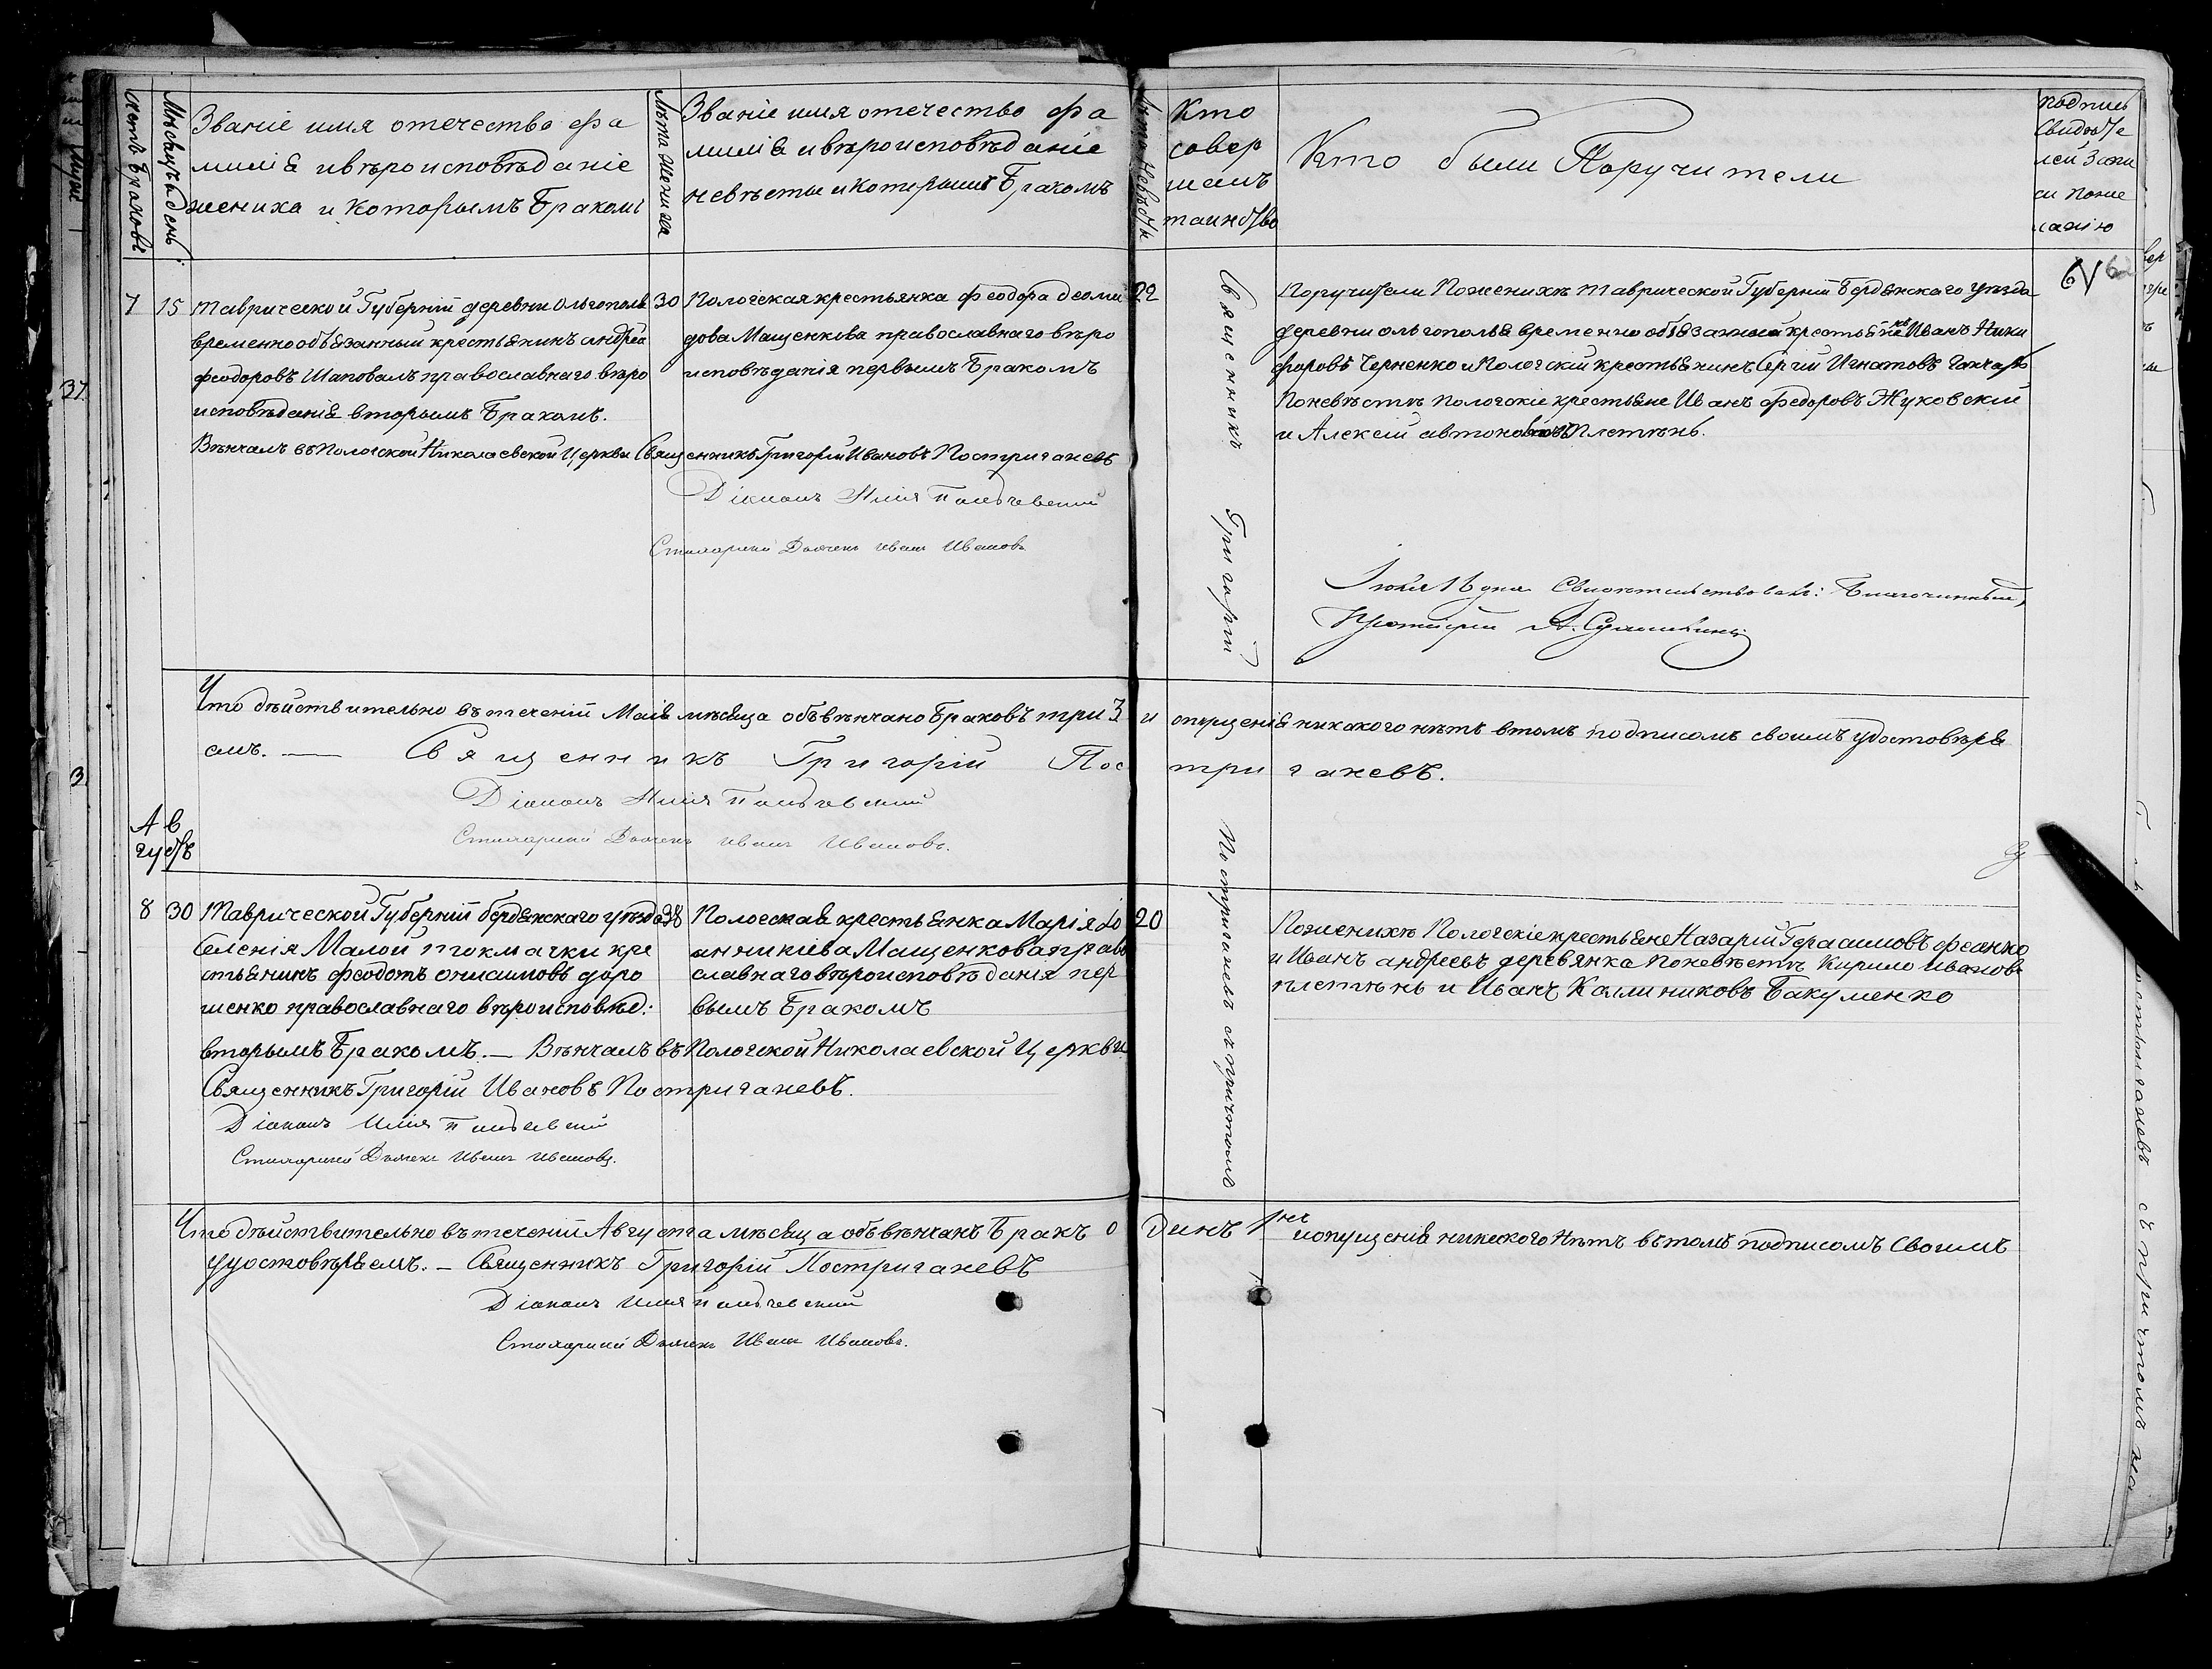 счетъ браковъ
Мѣсяцъ день
Званіе имя отечество фа
милія и вѣроисповѣданіе
жениха и которымъ бракомъ
Лѣта жениха
Званіе имя отечество фа
милія и вѣроисповѣданіе
невѣсты и которымъ бракомъ
Лѣта невѣсты
Кто
совер
шалъ
таинство
Кто были Поручители
Подпись
свидѣте
лей запи
си поже
ланію
7
15
Таврической Губерніи деревни Ольгополя
временно обязанный крестьянинъ андрей
феодоровъ Шаповалъ православнаго вѣро
исповѣданія вторымъ бракомъ.
30
Пологская крестьянка Феодора деоми
дова Мащенкова православнаго вѣро
исповѣданія первымъ бракомъ
22
Вѣнчалъ въ Пологской Николаевской Церкви Священникъ Григорій Ивановъ Постригачевъ
Діаконъ Илія
Стихарный Дьячекъ Иванъ Ивановъ
Священникъ Григорій Постригачевъ съ причтомъ
Поручители По женихѣ Таврической Губерніи бердянскаго уѣзда
деревни ольгополя временно обязанный крестьянинъ Иванъ Ники
форовъ Черненко и Пологскій крестьянинъ Сергій Игнатовъ Ганчарь
По невѣстѣ пологскіе крестьяне Иванъ федоровъ Жуковскій
и Алексій автономовъ Плетѣнь.
Іюля 16 дня Свидѣтельствовалъ: Благочинный,
Протоіерей А.
Что дѣйствительно въ теченіи Маія мѣсяца обвѣнчано браковъ три 3 и опущенія никакого нѣтъ в томъ подписомъ своимъ удостовѣря
емъ. — Священникъ Григорій Постригачевъ.
Діаконъ Илія
Стихарный Дьячекъ Иванъ Ивановъ.
Ав
густъ
8
30
Таврической Губерніи бердянскаго уѣзда
Селенія Малой токмачки кре
стьянинъ феодотъ онисимовъ доро
шенко православнаго вѣроисповѣд:
вторымъ бракомъ. — Вѣнчалъ въ Пологской Николаевской Церкви
Священникъ Григорій Ивановъ Постригачевъ.
Діаконъ Илія
Стихарный Дьячекъ Иванъ Ивановъ.
28
Пологская крестьянка Марія Іо
анникіева Мащенкова право
славнаго вѣроисповѣданія пер
вымъ бракомъ
20
По женихѣ Пологскіе крестьяне Назарій Герасимовъ
и Иванъ андреевъ деревянка по невѣстѣ Кирило Ивановъ
плетѣнь и Иванъ Калиниковъ Бакуменко
Что дѣйствительно въ теченіи Августа мѣсяца обвѣнчанъ бракъ одинъ 1нъ и опущенія никакого нѣтъ въ томъ подписомъ своимъ
удостовѣряемъ. — Священникъ Григорій Постригачевъ
Діаконъ Илія
Стихарный Дьячекъ Иванъ Ивановъ.